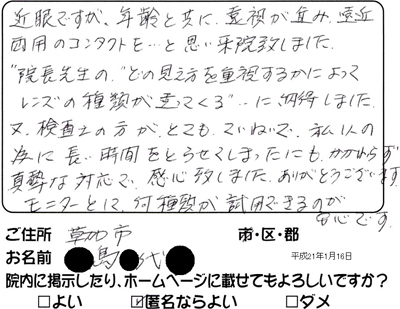 近眼ですが、年齢と共に、遠視が進み、遠近
両用のコンタクトを…と思い来院致しました。
"院長先生の、"どの見え方を重視するかによって
レンズの種類が違ってくる"‥に納得しました。
又、検査士の方が、とても、ていねいで、私1人の
為に長い時間をとらせてしまったにも、かかわらず
真摯な対応で、感心致しました。ありがとうございます。
モニターとして、何種類か試用できるのが
安心です。
ご住所 草加市 市・区・郡
お名前 鳥 代 平成21年1月16日
院内に掲示したり、ホームページに載せてもよろしいですか?
□よい ☑匿名ならよい □ダメ